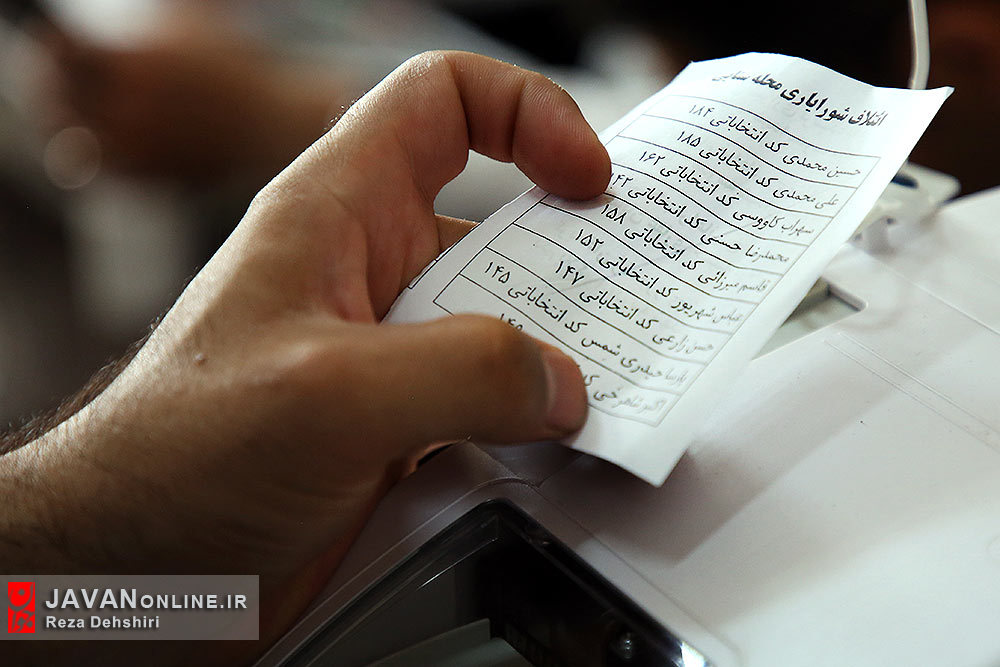 ائتلاف شورایاری محله
حسین محمدی کد انتخاباتی ۱۸۴
علی محمدی کد انتخاباتی ۱۸۵
سهراب کاووسی کد انتخاباتی ۱۶۲
محمدرضا حسنی کد انتخاباتی
قاسم میرزائی کد انتخاباتی ۱۵۸
عباس شهریور کد انتخاباتی ۱۵۲
حسن زارعی کد انتخاباتی ۱۴۷
پارسا حیدری شمس کد انتخاباتی ۱۴۵
اکبر شاهرخی
JAVANONLINE.IR
Reza Dehshiri